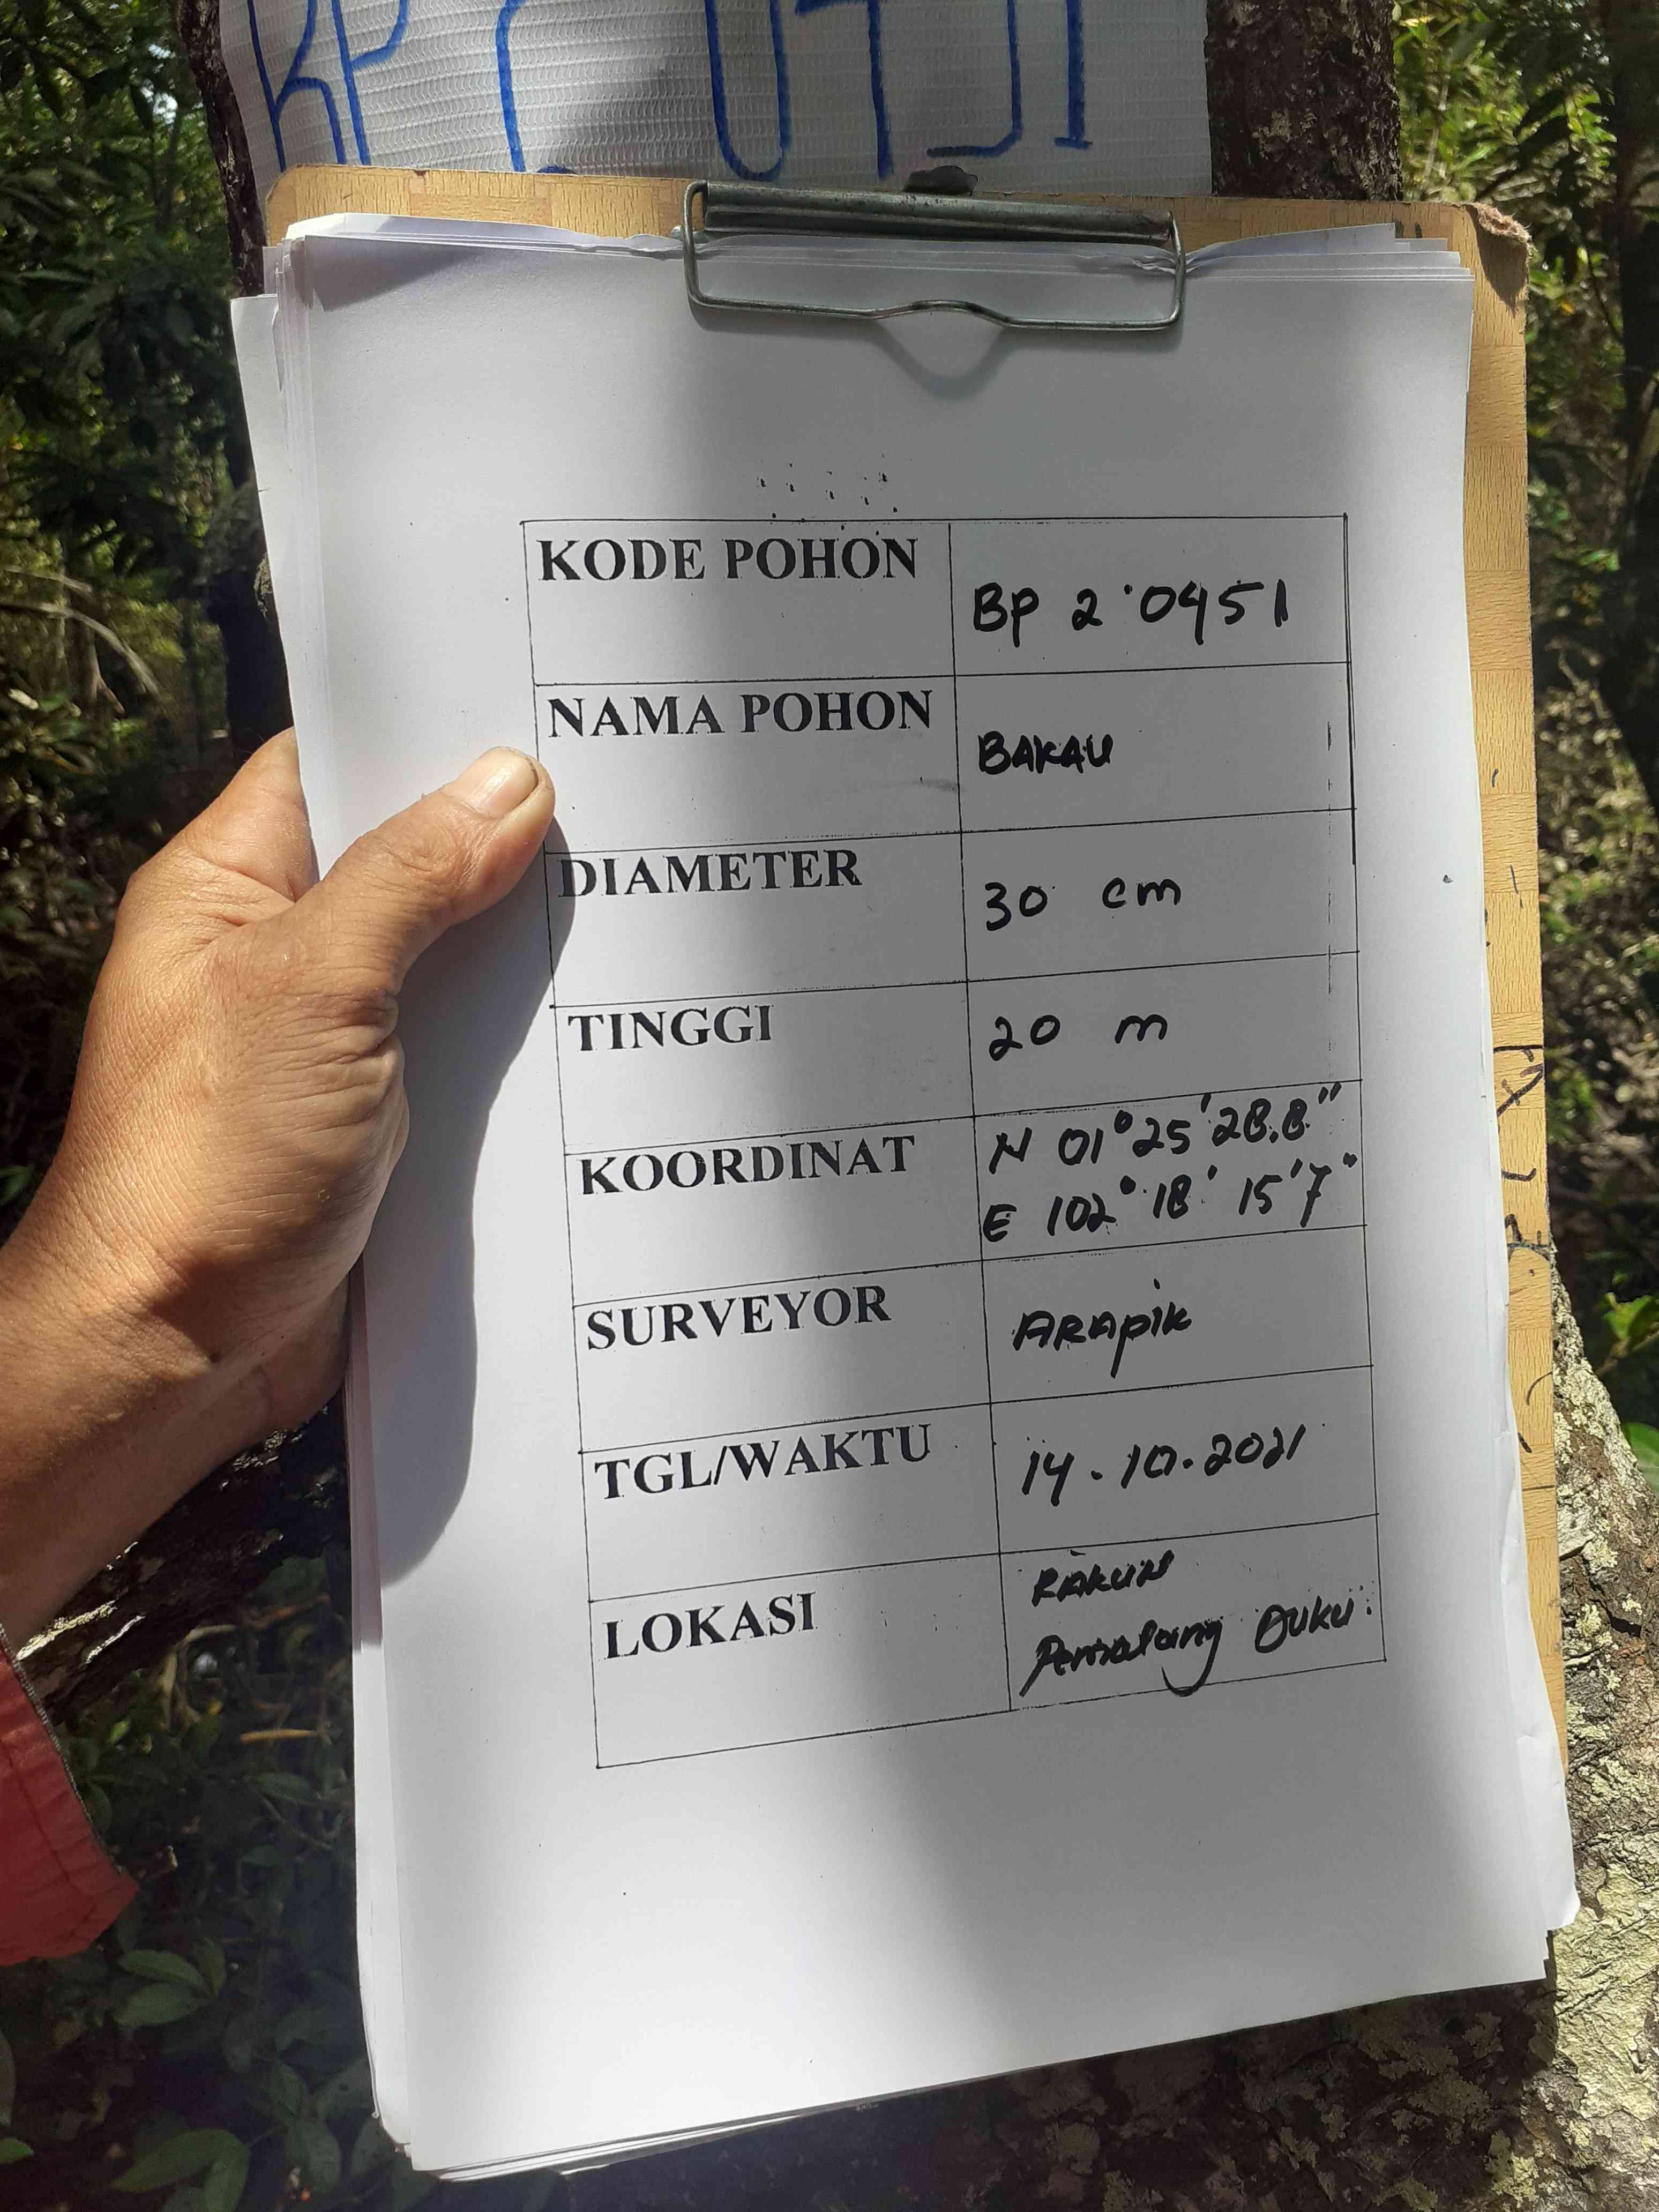 BP 2 0451
KODE POHON BP 2 0451
NAMA POHON BAKAU
DIAMETER 30 cm
TINGGI 20 m
KOORDINAT N 01° 25' 28.8"
E 102° 18' 15'7"
SURVEYOR ARAPIK
TGL/WAKTU 14.10.2021
LOKASI RAKUN
Pematang Duku.